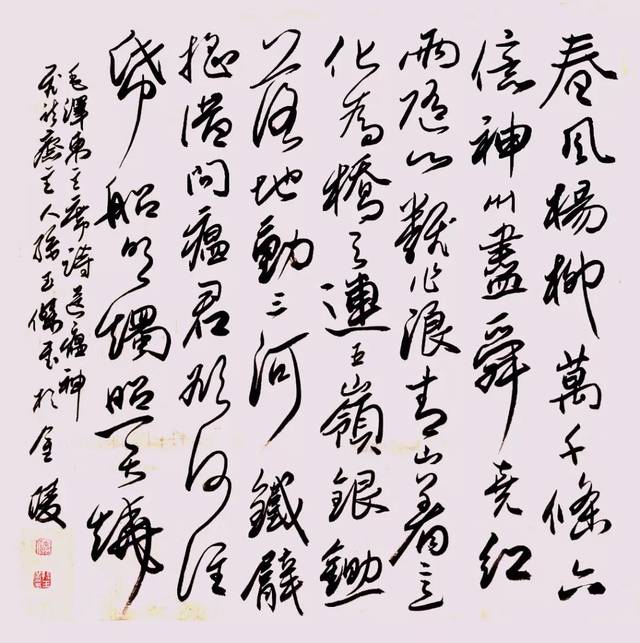 春風楊柳萬千條六
億神州盡舜堯紅
雨随心翻作浪青山着意
化為橋天連五嶺銀鋤
落地動三河鐵臂
搖借問瘟君欲何往
紙船明燭照天燒
毛澤東主席詩送瘟神
主人孫玉傑書於金陵